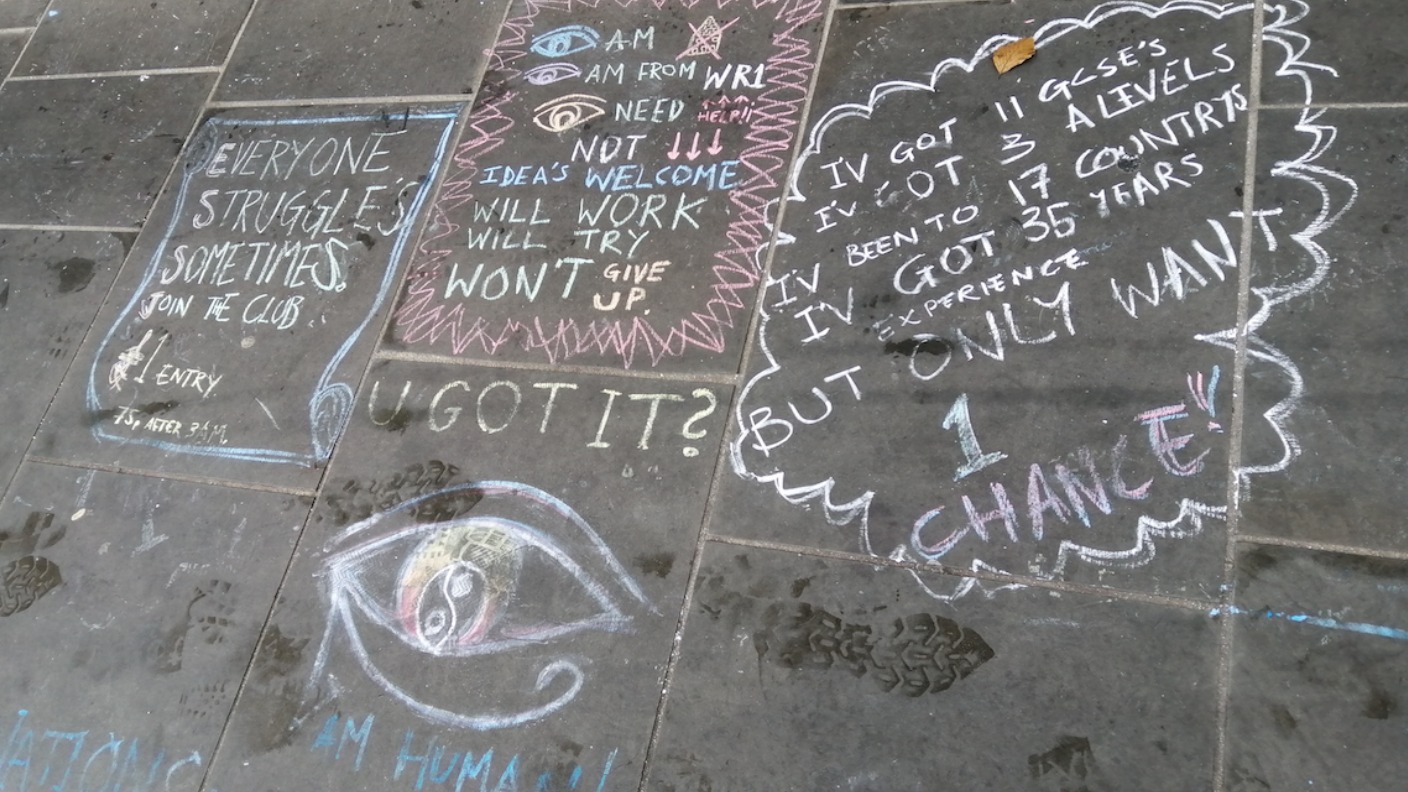 EVERYONE
STRUGGLE'S
SOMETIMES.
JOIN THE CLUB
£1 ENTRY
75p AFTER 3AM.
AM
AM FROM WR1
NEED HELP!!
NOT
IDEA'S WELCOME
WILL WORK
WILL TRY
WON'T GIVE
UP.
I'V GOT 11 GCSE'S
I'V GOT 3 ALIVELS
I'V BEEN TO 17 COUNTRTS
IV GOT 35 YEARS
EXPERIENCE
BUT ONLY WANT
1
CHANCE!!
U GOT IT?
AM